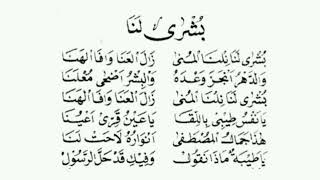 بُشْرَى لَنَا
بُشْرَى لَنَا نِلْنَا الْمُنَى زَالَ الْعَنَا وَافَا الْهَنَا
وَالدَّهْرُ اَنْجَزَ وَعْدَهُ وَالْبِشْرُ اَضْحَى مُعْلَنَا
بُشْرَى لَنَا نِلْنَا الْمُنَى زَالَ الْعَنَا وَافَا الْهَنَا
يَانَفْسُ طِيْبِيْ بِاللِّقَا يَاعَيْنُ قِرِّيْ اَعْيُنَا
هٰذَا جَمَالُ الْمُصْطَفَى اَنْوَارُهُ لَاحَتْ لَنَا
يَاطَيْبَةُ مَاذَا نَقُوْلُ وَفِيْكِ قَدْ حَلَّ الرَّسُوْلْ